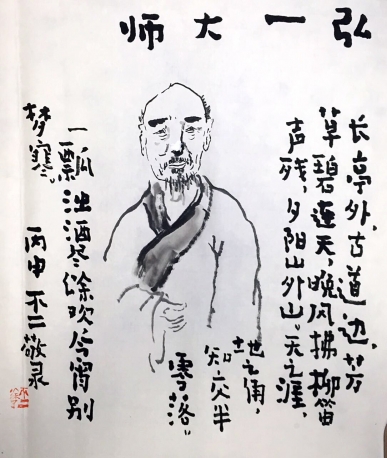 弘一大师
长亭外,古道边,芳
草碧連天,晚风拂柳笛
声残,夕阳山外山。天之涯,
地之角,
知交半
零落。
一瓢浊酒尽馀欢,今宵别
梦寒。 丙申 不二敬录